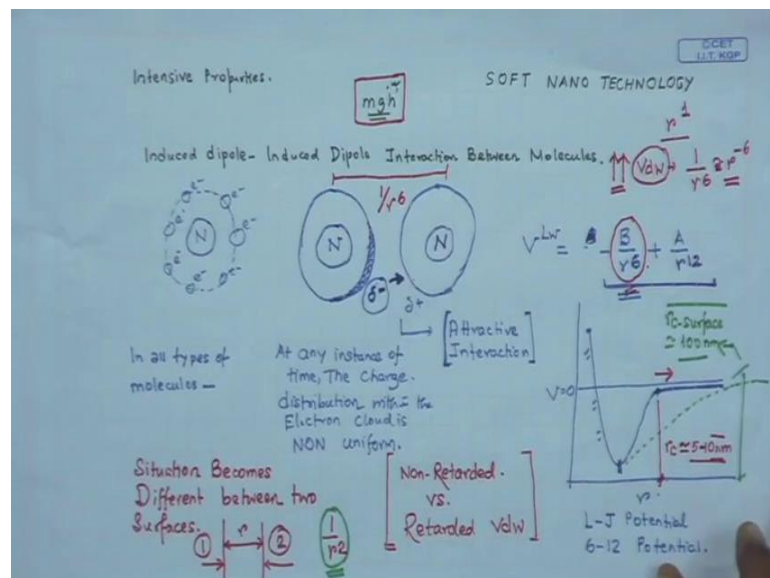 CCET
I.I.T. KGP
Intensive Properties.
mgh
SOFT NANO TECHNOLOGY
r¹
Induced dipole- Induced Dipole Interaction Between Molecules.
↑↑ Vdw → 1/r6 ≅ r⁻⁶
1/r6
e⁻ e⁻ e⁻ e⁻ e⁻ e⁻
N
N
N
V^LW = - B/r6 + A/r12
δ-
δ+
[Attractive
Interaction]
rc-surface
≃ 100nm
In all types of
molecules -
At any instance of
time, The Charge
distribution within the
Electron Cloud is
NON uniform.
V=0
rc ≃ 5-10nm
r
Situation Becomes
Different between two
Surfaces.
① r ②
1/r2
[Non-Retarded.
vs.
Retarded Vdw]
L-J Potential
6-12 Potential.